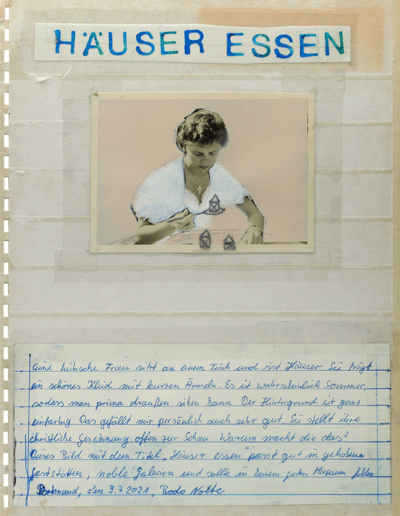 HÄUSER ESSEN
Eine hübsche Frau sitzt an einem Tisch und isst Häuser. Sie trägt
ein schönes Kleid mit kurzen Ärmeln. Es ist wahrscheinlich Sommer,
sodass man prima draußen sitzen kann. Der Hintergrund ist ganz
einfarbig. Das gefällt mir persönlich auch sehr gut. Sie stellt ihre
christliche Gesinnung offen zur Schau. Warum macht die das?
Dieses Bild mit dem Titel „Häuser essen" passt gut in gehobene
Gaststätten, noble Galerien und sollte in keinem guten Museum fehlen
Dortmund, den 9.7.2021, Bodo Nolte